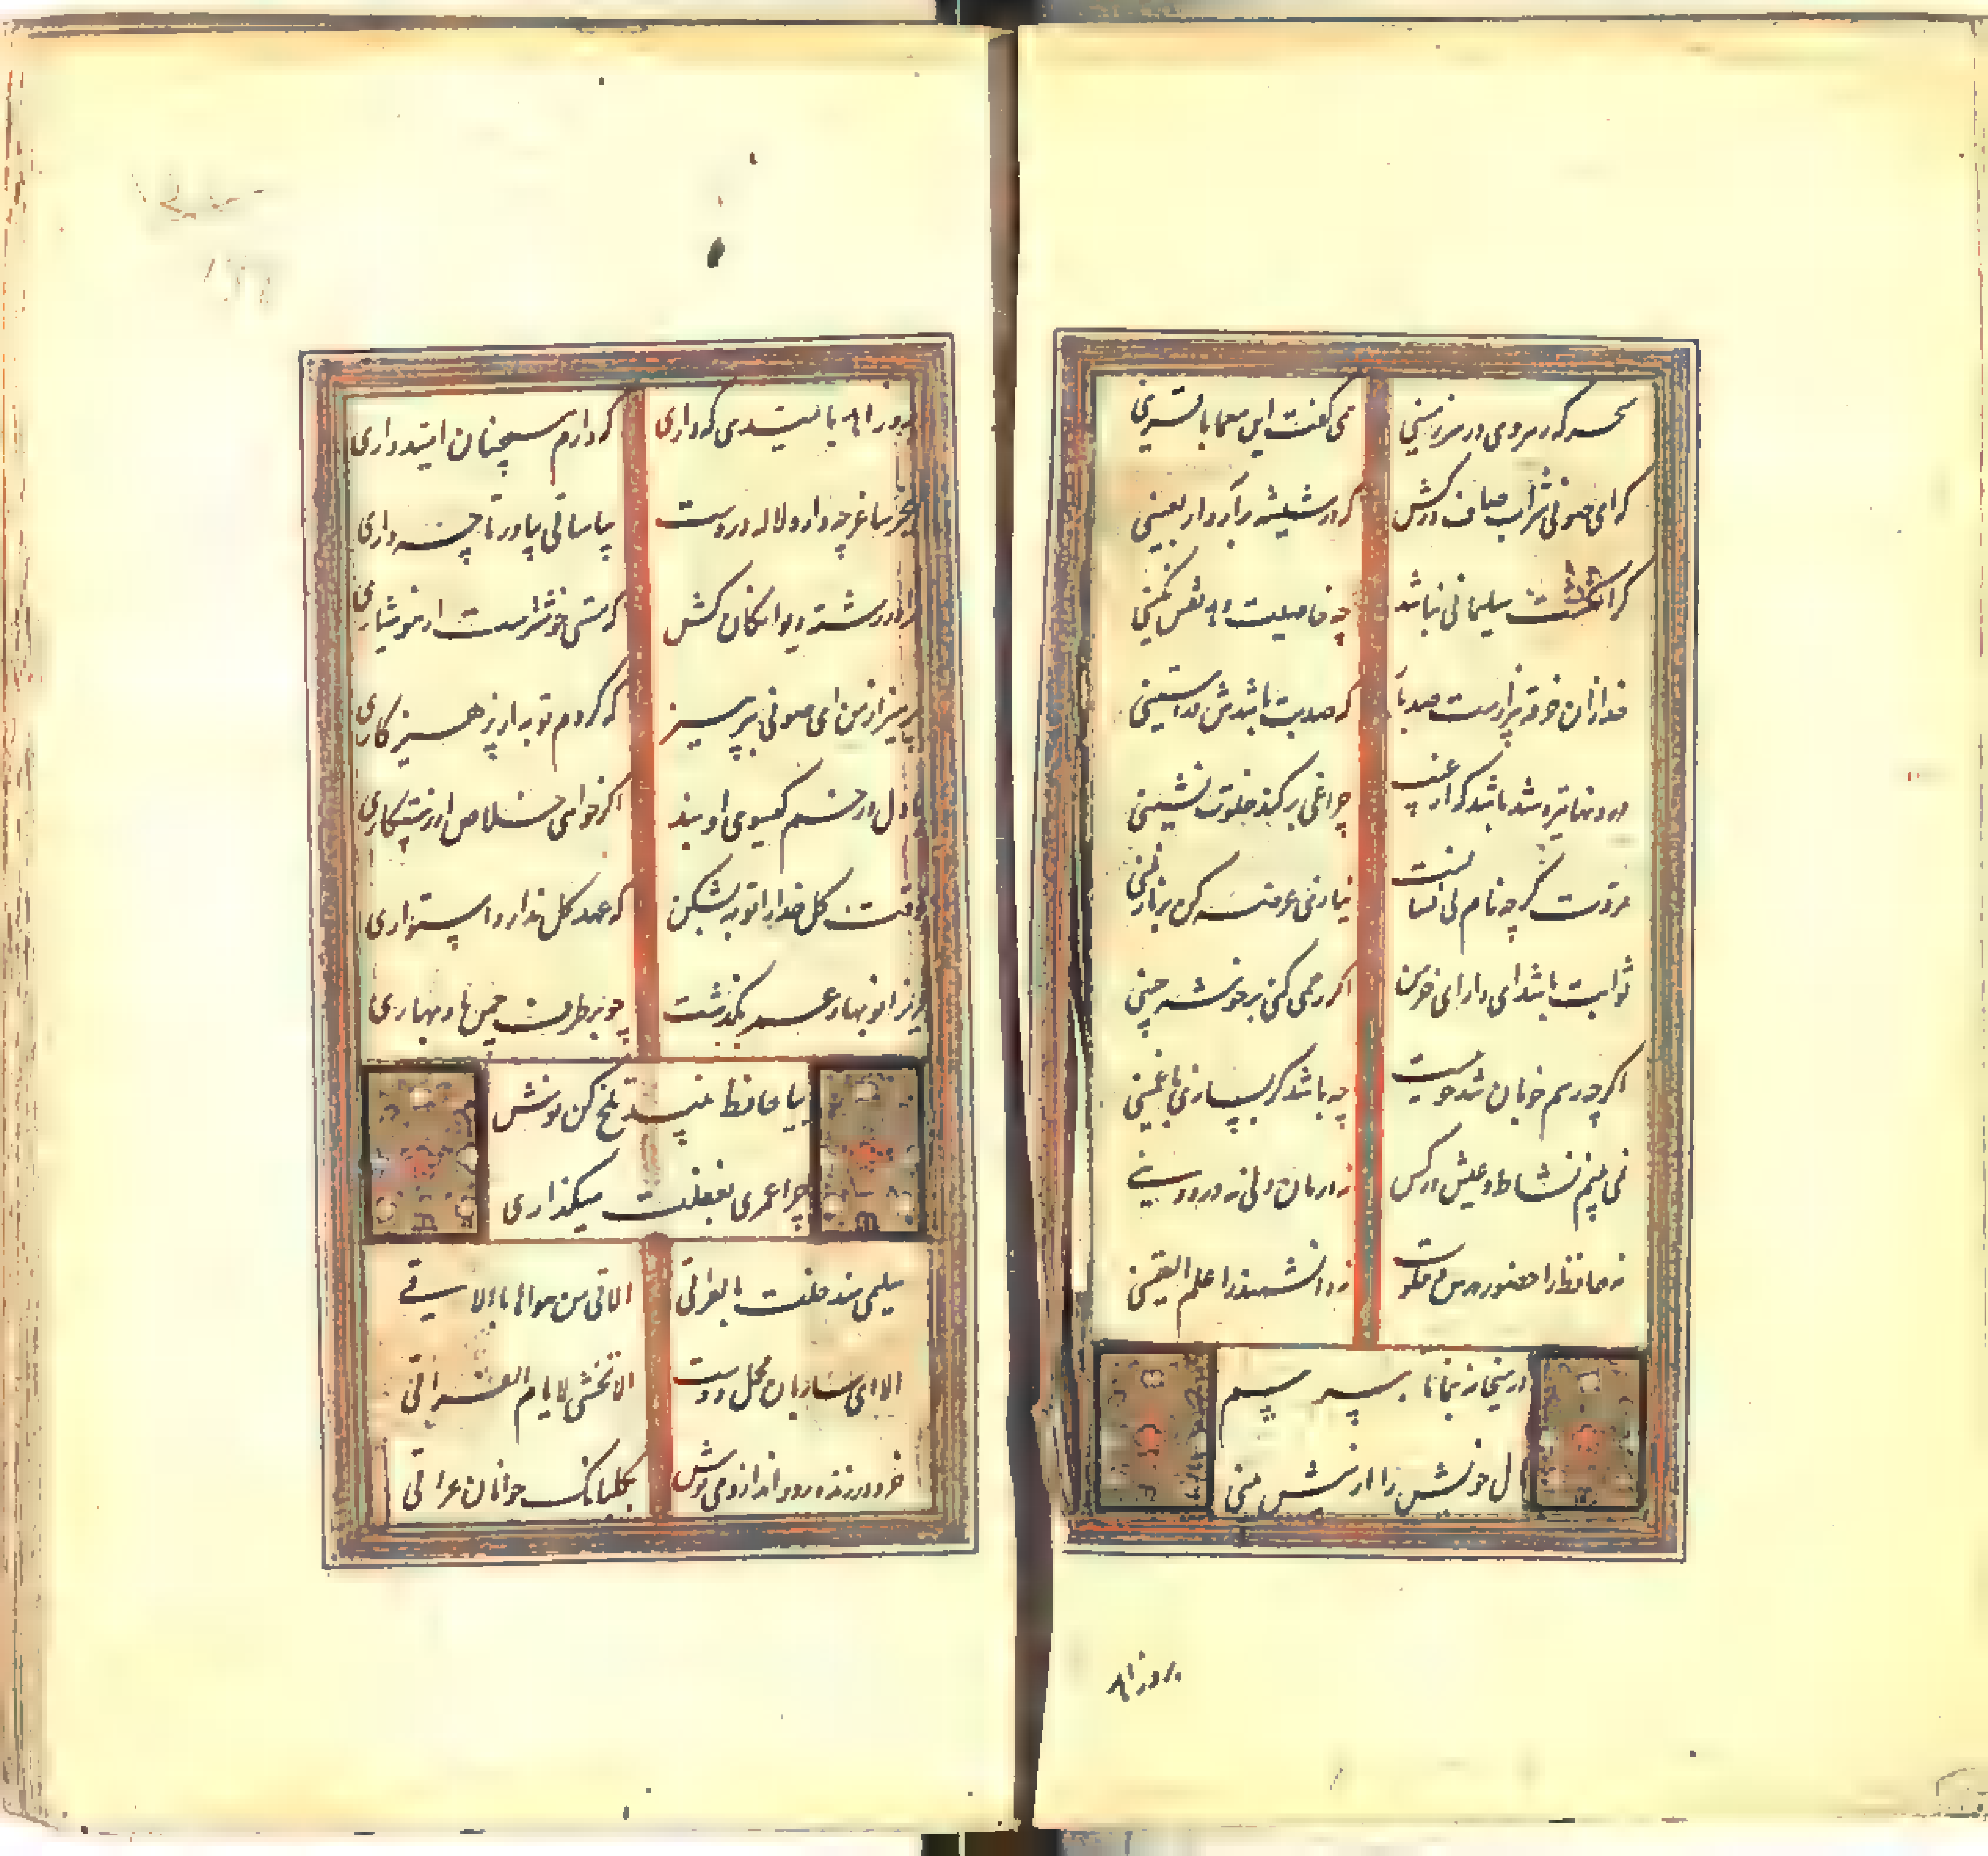 سحرکه رهروی در سرزمینی
همی گفت این معما با قرینی
که ای صوفی شراب صاف درکش
که در شیشه برآرد اربعینی
گر انگشت سلیمانی نباشد
چه خاصیت دهد نقش نگینی
خدا زان خرقه بیزارست صد بار
که صد بت باشدش در آستینی
درونها تیره شد باشد که از غیب
چراغی بر کند خلوت نشینی
مروت گرچه نام بی نشانست
نیازی عرضه کن بر نازنینی
ثوابت باشد ای دارای خرمن
اگر رحمی کنی بر خوشه چینی
اگرچه رسم خوبان تندخوییست
چه باشد گر بسازی با غمینی
نمی بینم نشاط و عیش در کس
نه درمان دلی نه درد دینی
نه حافظ را حضور درس خلوت
نه دانشمند را علم الیقینی
در میخانه بنما تا بپرسم
مآل خویش را از پیش بینی
بروز اهد
بروز اهد بامیدی که داری
که دارم همچنان امیدواری
بجز ساغر چه دارد لاله در دست
بیا ساقی بیاور تا چه داری
مرا در رشته دیوانگان کش
که مستی خوشترست از هوشیاری
بپرهیز از من ای صوفی بپرهیز
که کردم توبه از پرهیزکاری
بیا دل در خم گیسوی او بند
اگر خواهی خلاص از رستگاری
بوقت گل خدا را توبه بشکن
که عهد گل ندارد استواری
عزیزا نوبهار عمر بگذشت
چو بر طرف چمن باد بهاری
بیا حافظ پند تلخ کن نوش
چرا عمری بغفلت میگذاری
سلیمی منذ حلت بالعراق
الاقی من هواها ما الاقی
الا ای ساربان محمل دوست
الی
خرد در زنده رود انداز و می نوش
بگلبانگ جوانان عراقی